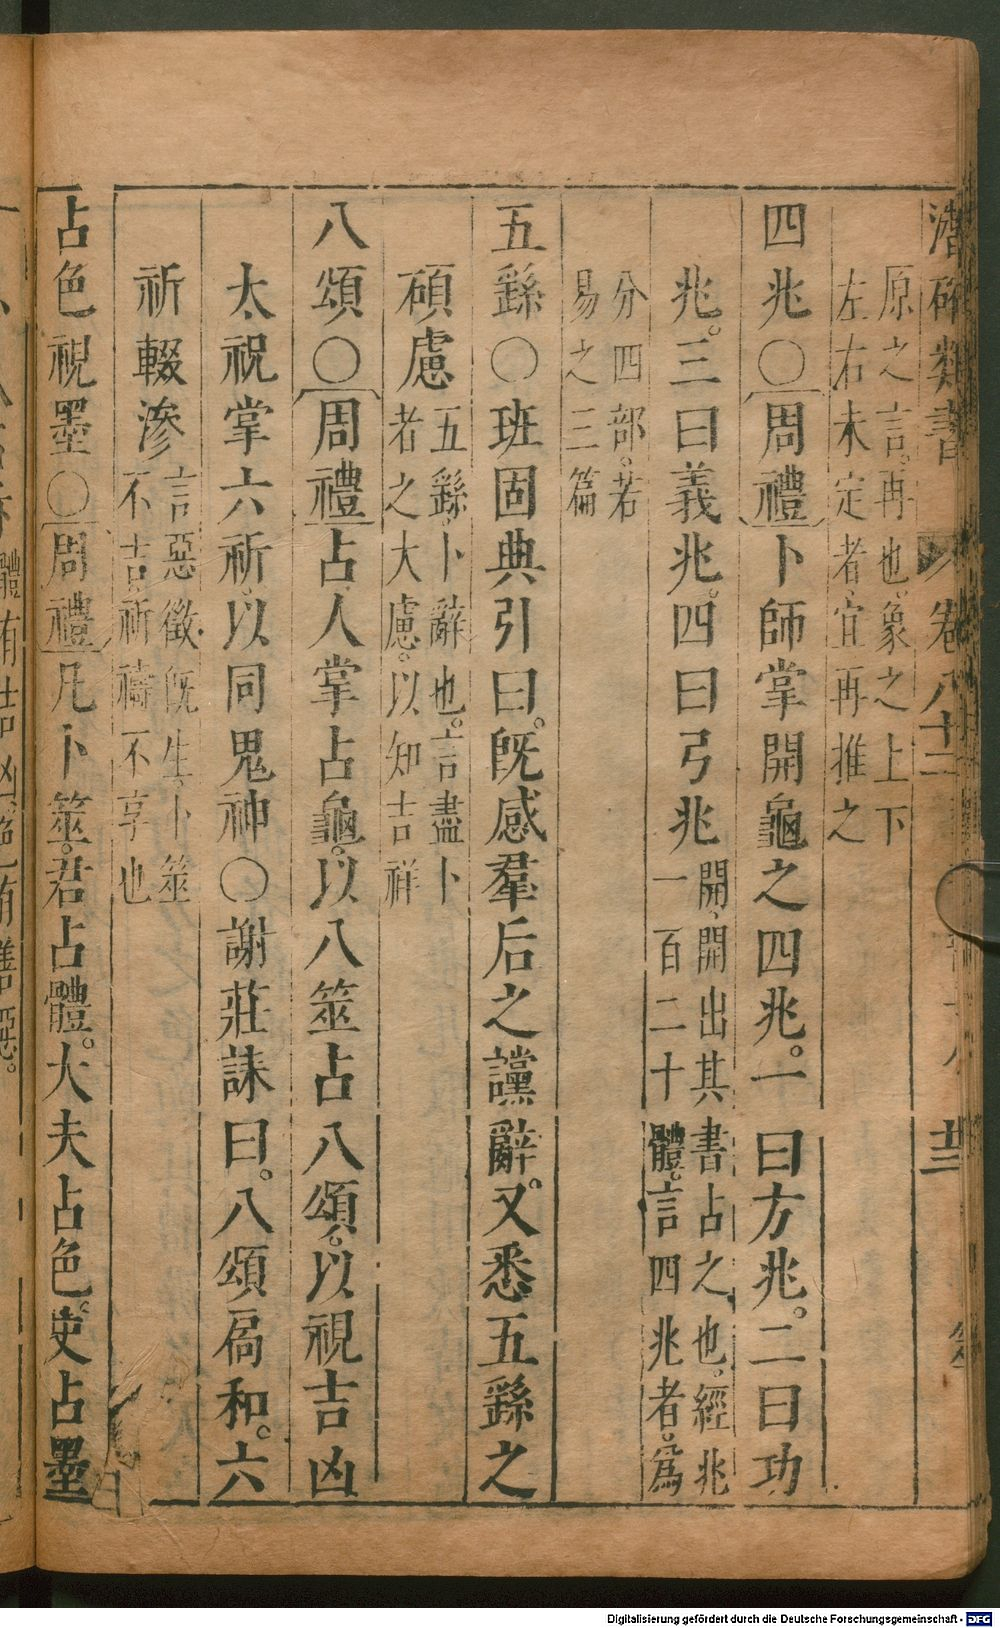 潛確類書 卷八十二
原之言。再也。象之上下
左右未定者、宜再推之
四兆○周禮卜師掌開龜之四兆。一曰方兆。二曰功
兆。三曰義兆。四曰弓兆
開、開出其書占之也。經兆
一百二十體。言四兆者。爲
分四部。若
易之三篇
五繇○班固典引曰。旣感羣后之讜辭。又悉五繇之
碩慮
五繇、卜辭也。言盡卜
者之大慮。以知吉祥
八頌○周禮占人掌占龜。以八筮占八頌。以視吉凶
太祝掌六祈、以同鬼神○謝莊誄曰。八頌扃和。六
祈輟滲
言惡徵旣生、卜筮
不吉、祈禱不享也
占色視墨○周禮凡卜筮。君占體。大夫占色。史占墨
Digitalisierung gefördert durch die Deutsche Forschungsgemeinschaft - DFG